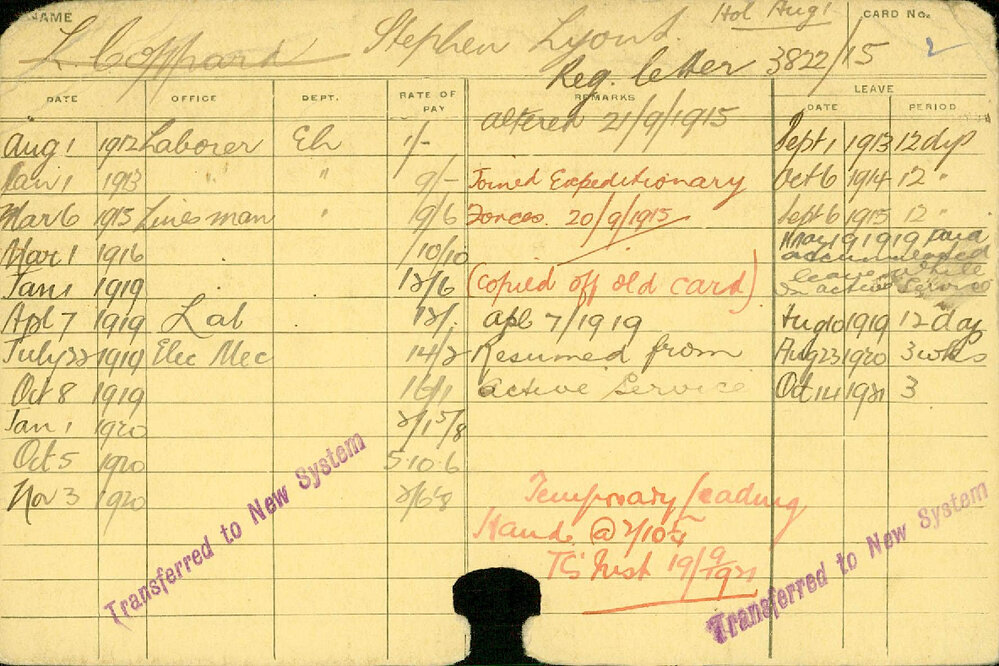 NAME Hol Aug 1 CARD No. 2
L Coppard Stephen Lyons.
Reg. letter 3822/15
DATE OFFICE DEPT. RATE OF PAY REMARKS LEAVE
DATE PERIOD
altered 21/9/1915
Aug 1 1912 Laborer Eh 1/- Sept 1 1913 12 dys
Jan 1 1913 " " 9/- Joined Expeditionary Oct 6 1914 12 "
Mar 6 1915 Linesman " 9/6 Forces. 20/9/1915 Sept 6 1915 12 "
Mar 1 1916 10/10 May 19 1919 paid
accumulated
Jan 1 1919 12/6 (copied off old card) leave while
on active service
Apl 7 1919 Lab 12/. apl 7/1919 Aug 10 1919 12 day
July 22 1919 Elec Mec 14/2 Resumed from Aug 23 1920 3 wks
Oct 8 1919 16/1 active Service Oct 14 1921 3
Jan 1 1920
Oct 5 1920 5.10.6
Nov 3 1920
Temporary leading
Hand @
19/9/1921
Transferred to New System
Transferred to New System